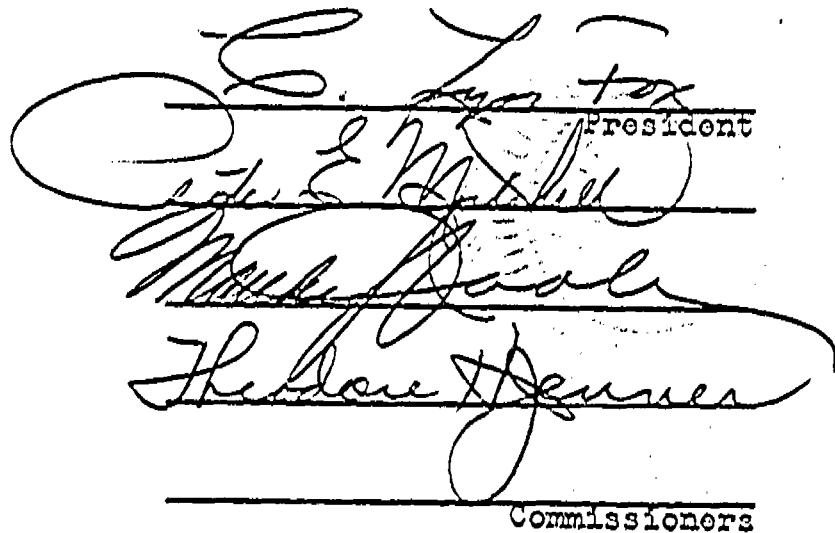 E. Lyn Fox
President
Peter E Mitchell
Theodore Jenner
Commissioners